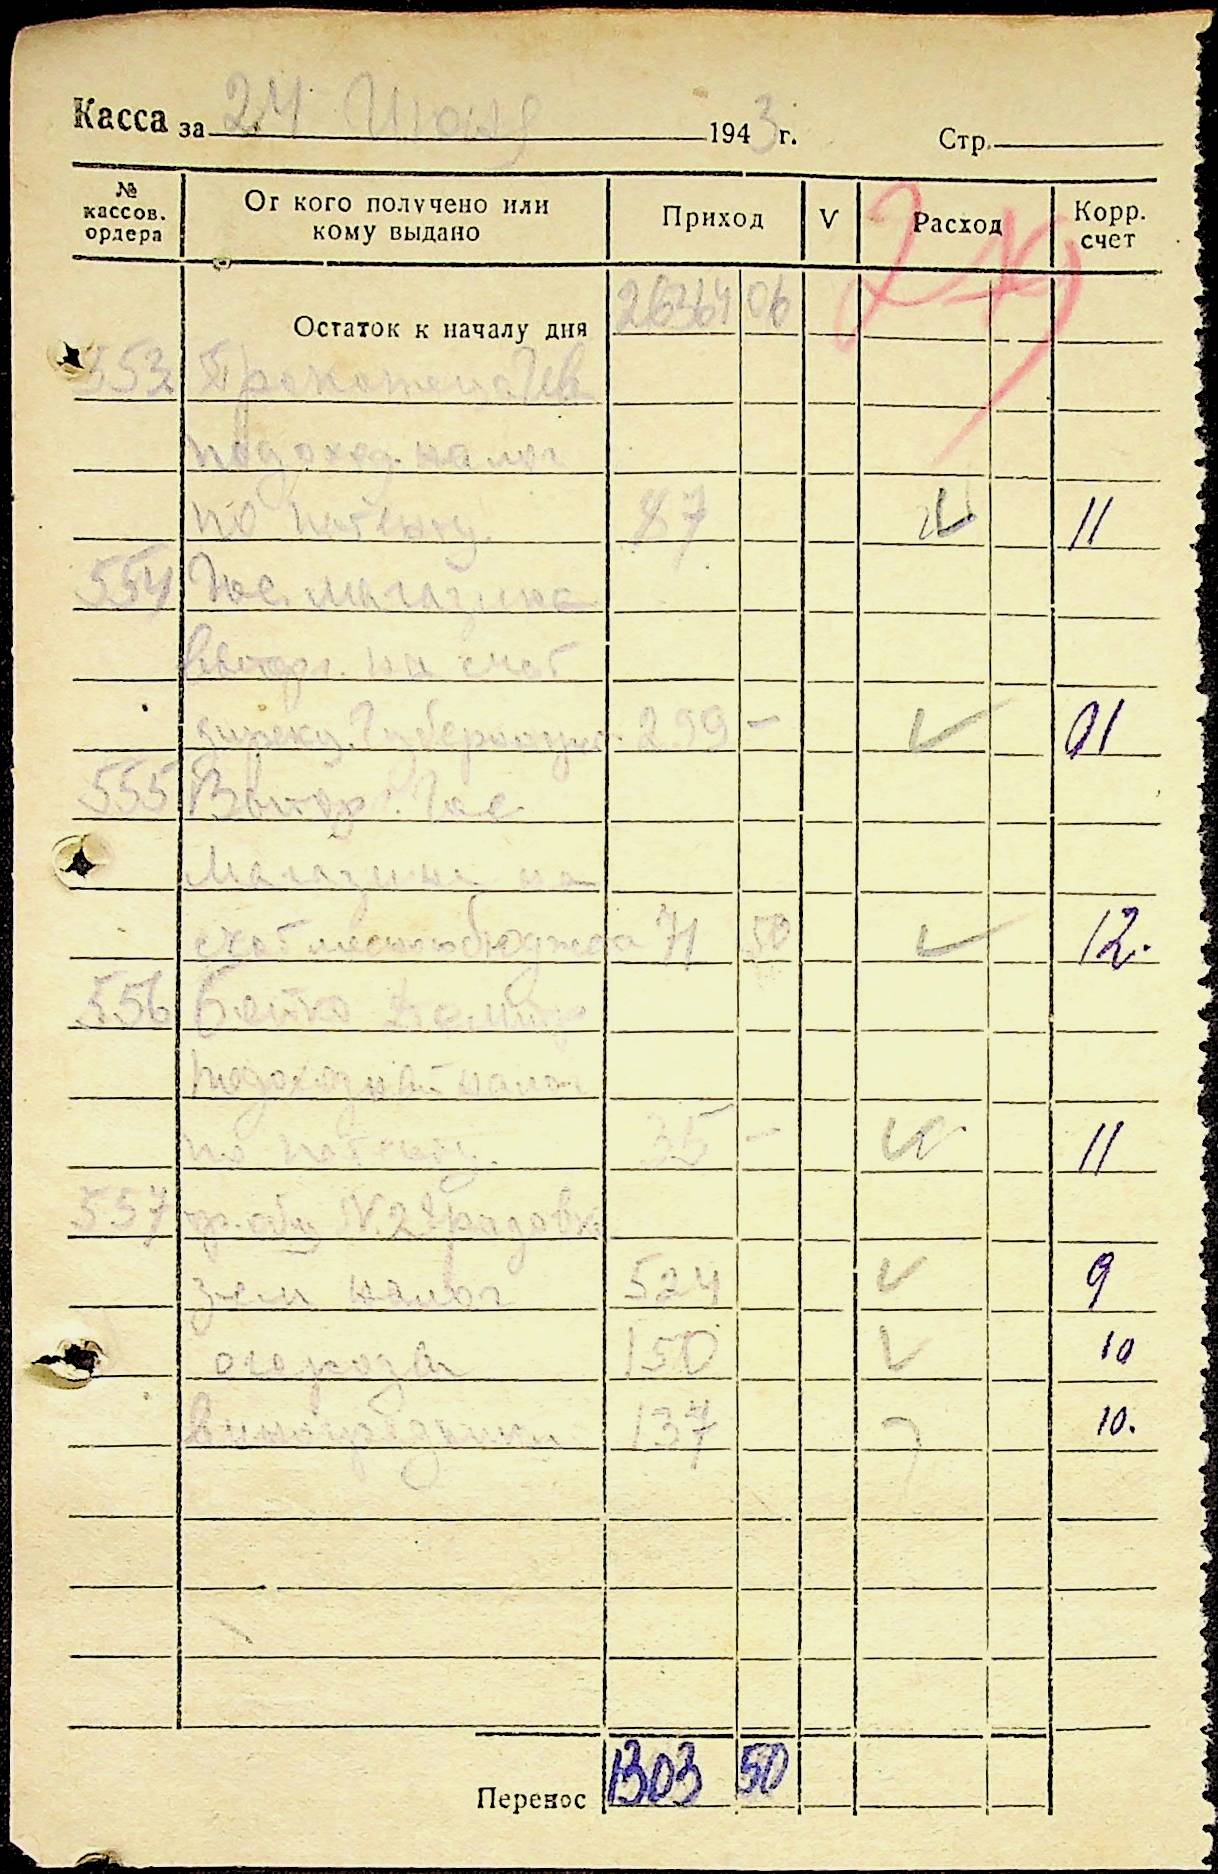 Касса за 24 Июня 1943 г. Стр.
№ кассов. ордера
От кого получено или кому выдано
Приход
V
Расход
Корр. счет
249
Остаток к началу дня 26364 06
553
подоход. налог
по патенту. 87 11
554 Гос. магазина
на счет
299 – 01
555 Гос.
магазина на
счет местн. бюджета 71 50 12.
556
подоходный налог
по патенту. 35 – 11
557 N. 2
зем налог 524 9
огороды 150 10
виноградники 137 10.
Перенос 1303 50